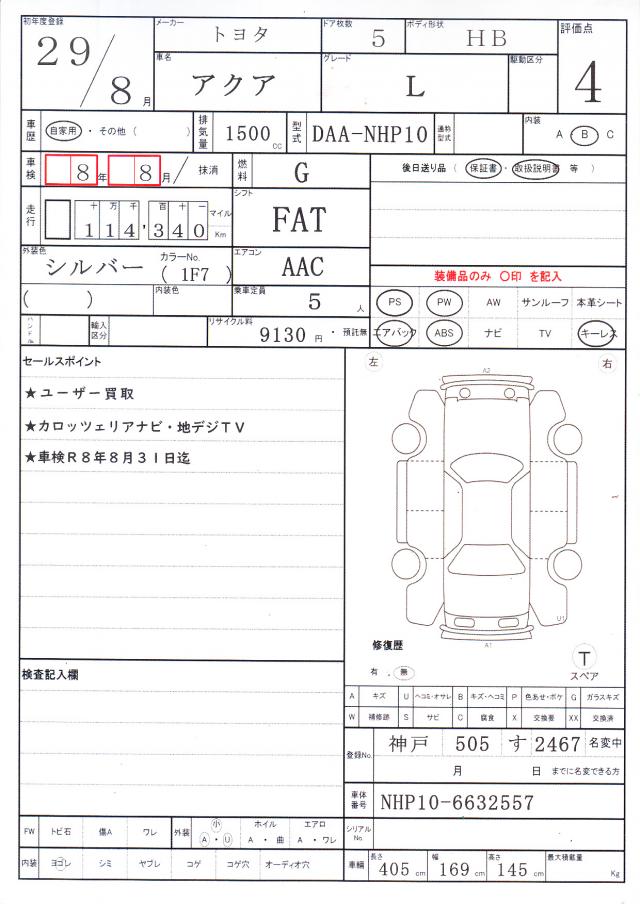 初年度登録 29/8月
メーカー トヨタ
ドア枚数 5
ボディ形状 HB
評価点 4
車名 アクア
グレード L
駆動区分
車歴 自家用・その他( )
排気量 1500cc
型式 DAA-NHP10
通称型式
内装 A・B C
車検 8年 8月/ 抹消
燃料 G
後日送り品( 保証書・取扱説明書 等 )
走行 十万千百十一
114,340 マイル Km
シフト FAT
外装色 シルバー
カラーNo. ( 1F7 )
エアコン AAC
装備品のみ ○印 を記入
( )
内装色
乗車定員 5人
PS PW AW サンルーフ 本革シート
ハンドル
輸入区分
リサイクル料 9130円・預託無
エアバック ABS ナビ TV キーレス
セールスポイント
★ユーザー買取
★カロッツェリアナビ・地デジTV
★車検R8年8月31日迄
左 右
A2
U1
A1
修復歴
有 . 無
T
スペア
検査記入欄
A キズ U ヘコミ・オサレ B キズ・ヘコミ P 色あせ・ボケ G ガラスキズ
W 補修跡 S サビ C 腐食 X 交換要 XX 交換済
登録No. 神戸 505 す 2467 名変中
月 日 までに名変できる方
車体番号 NHP10-6632557
シリアルNo.
FW トビ石 傷A ワレ
外装 小 A・U
ホイル A・曲
エアロ A・ワレ
内装 ヨゴレ シミ ヤブレ コゲ コゲ穴 オーディオ穴
車輌 長さ 405cm 幅 169cm 高さ 145cm 最大積載量 Kg